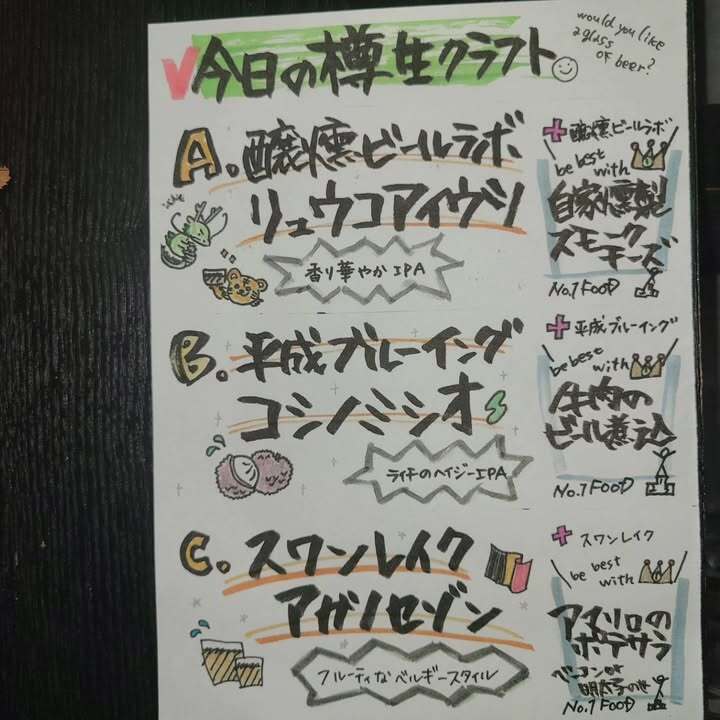 今日の樽生クラフト
would you like
a glass
of beer?
A. 醸燻ビールラボ
リュウコアイヴツ
香り華やかIPA
+ 醸燻ビールラボ
be best
with
自家燻製
スモーク
チーズ
No.1 FOOD
B. 平成ブルーイング
コシノミシオ
ライチのヘイジーIPA
+ 平成ブルーイング
be best
with
牛肉の
ビール煮込
No.1 FOOD
C. スワンレイク
アガノセゾン
フルーティなベルギースタイル
+ スワンレイク
be best
with
ポテサラ
ベーコンor
明太子のせ
No.1 FOOD